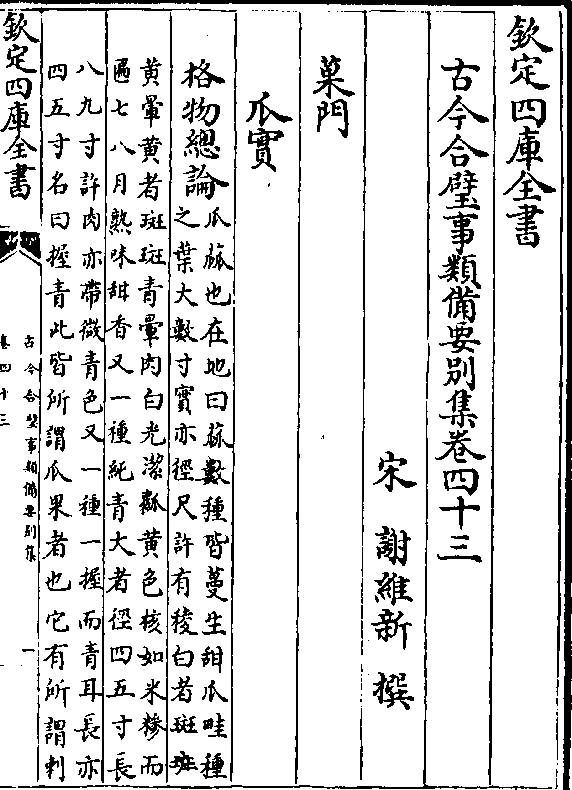 欽定四庫全書
古今合璧事類備要別集卷四十三
宋　謝維新　撰
菓門
瓜實
格物總論
瓜蓏也在地曰蓏數種皆蔓生甜瓜畦種
之葉大數寸實亦徑尺許有稜白者斑斑
黄暈黄者斑斑青暈肉白光潔瓤黄色核如米糝而
匾七八月熟味甜香又一種純青大者徑四五寸長
八九寸許肉亦帶微青色又一種一握而青耳長亦
四五寸名曰握青此皆所謂瓜果者也它有所謂刺
欽定四庫全書
古今合璧事類備要別集
卷四十三
一